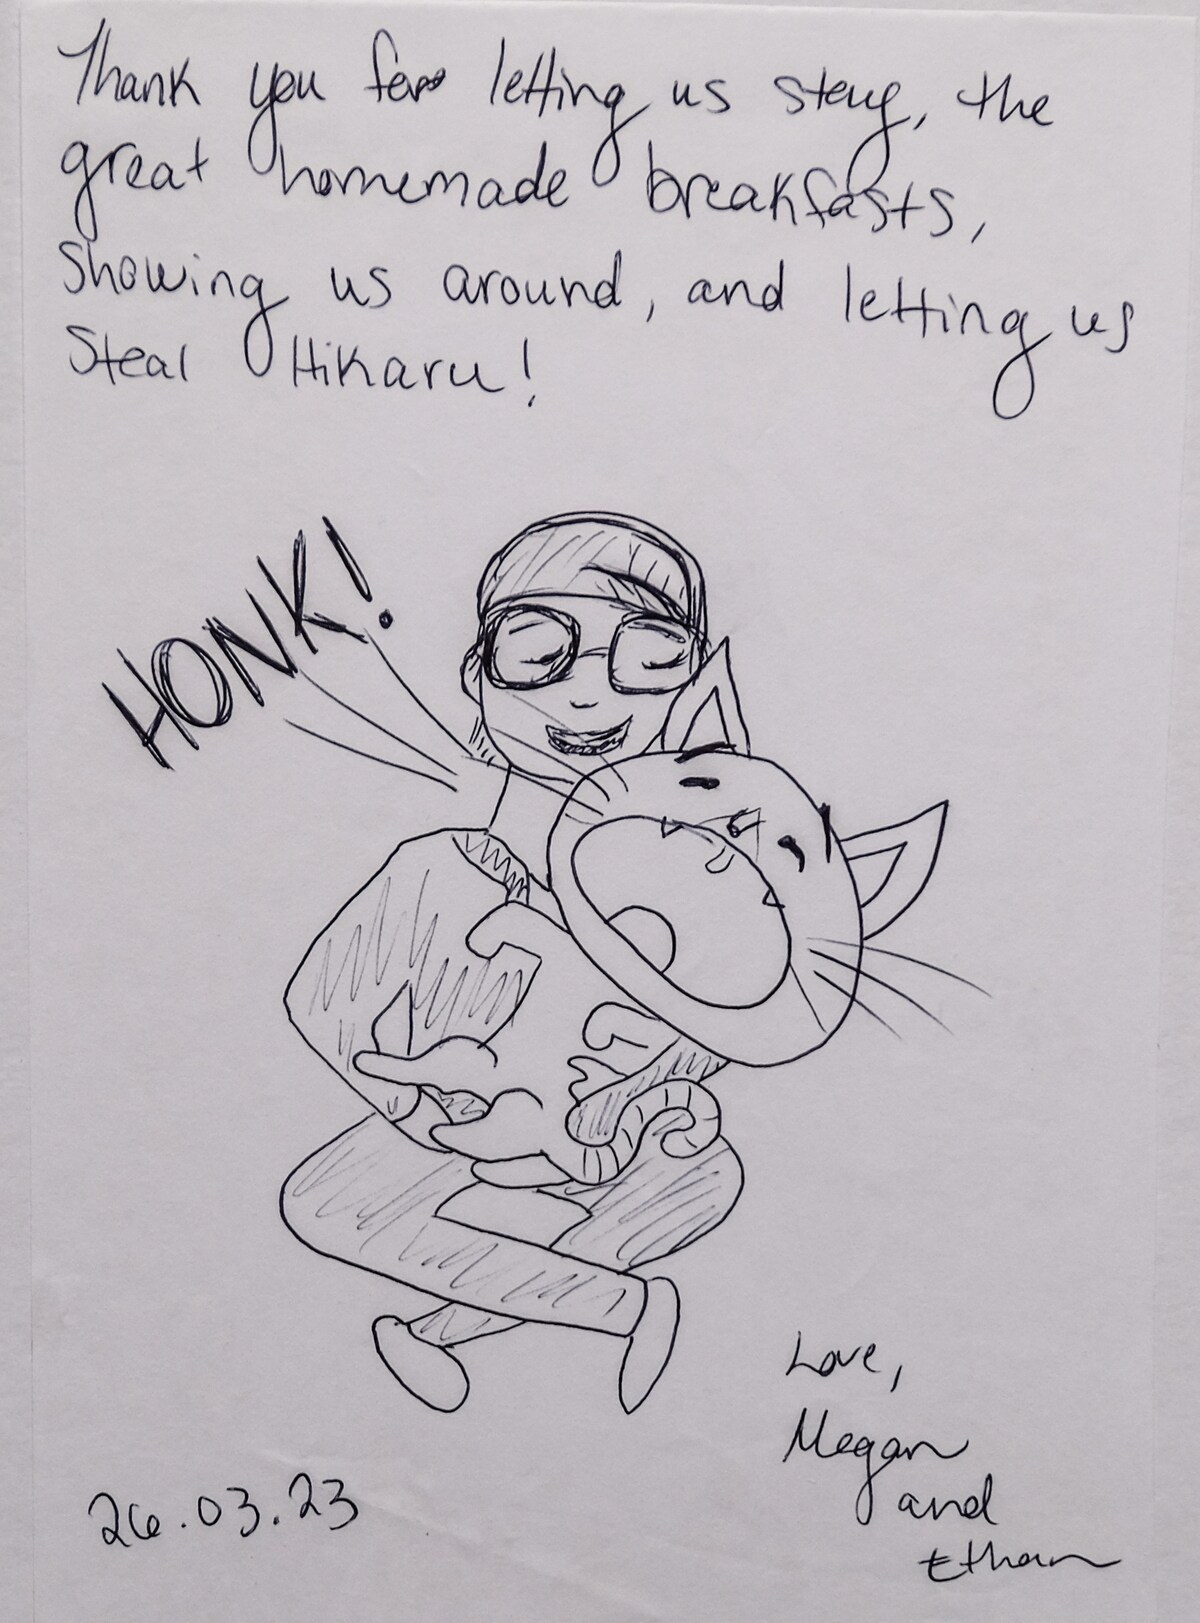 Thank you for letting us stay, the
great homemade breakfasts,
Showing us around, and letting us
Steal Hikaru!
HONK!
Love,
Megan
and
Ethan
26.03.23